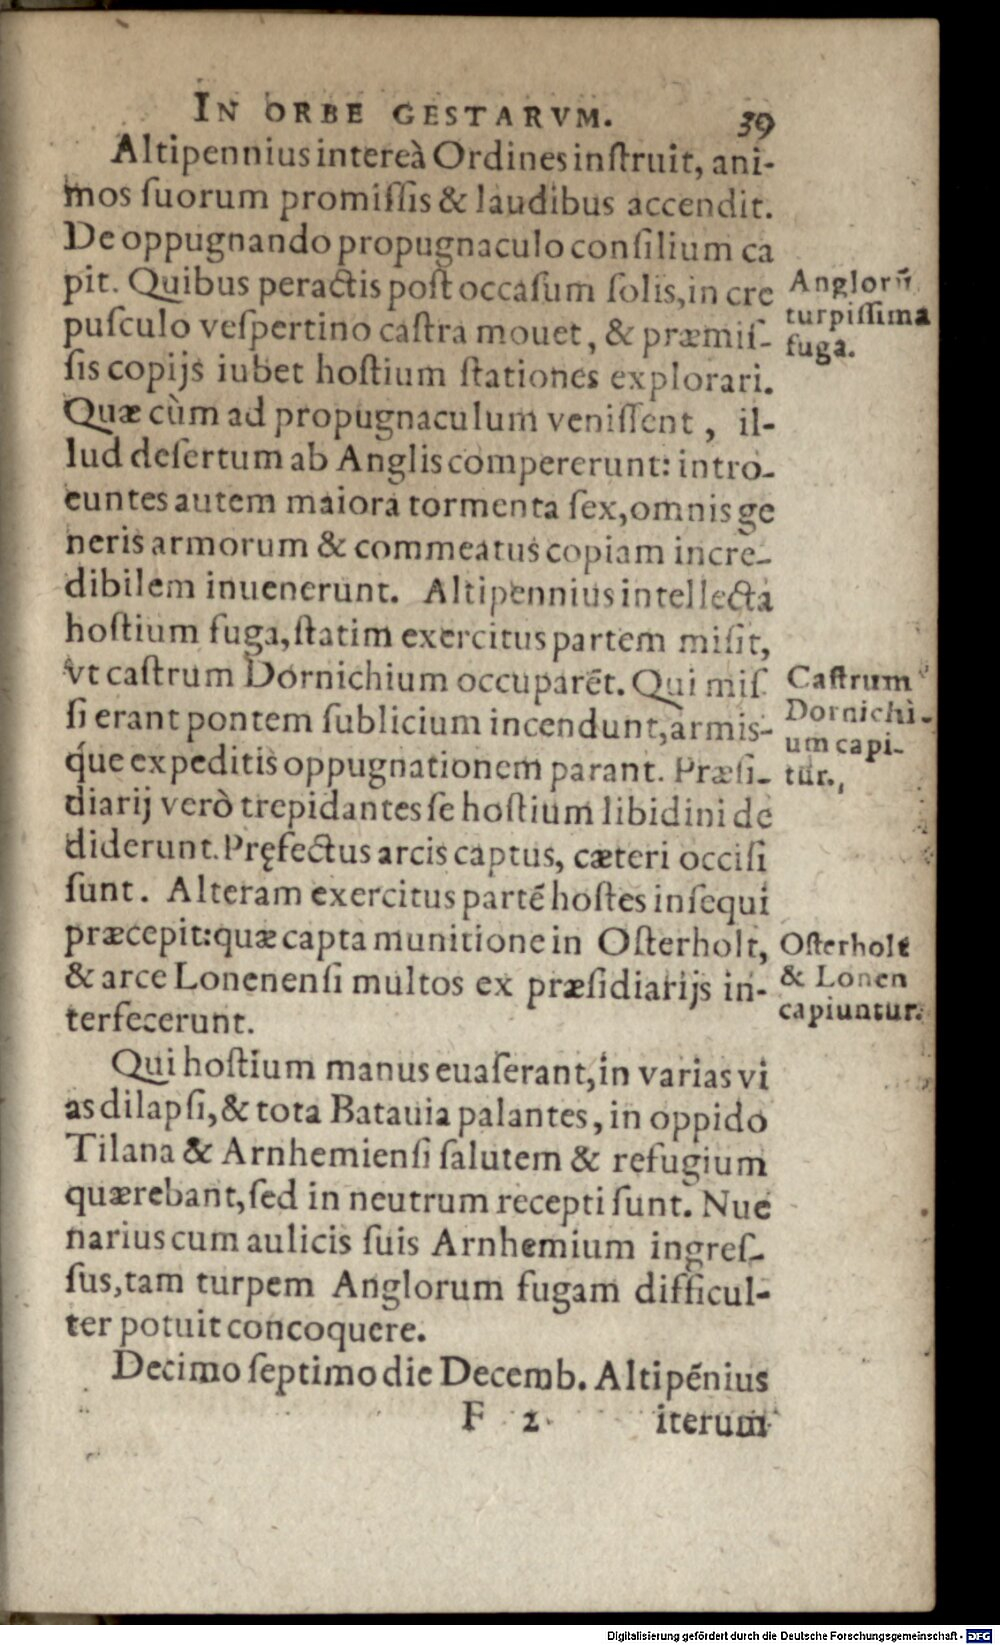 IN ORBE GESTARVM. 39
Altipennius intereà Ordines inſtruit, ani-
mos ſuorum promiſſis & laudibus accendit.
De oppugnando propugnaculo conſilium ca
pit. Quibus peractis poſt occaſum ſolis, in cre
puſculo veſpertino caſtra mouet, & præmiſ-
ſis copijs iubet hoſtium ſtationes explorari.
Quæ cùm ad propugnaculum veniſſent, il-
lud deſertum ab Anglis compererunt: intro-
euntes autem maiora tormenta ſex, omnis ge
neris armorum & commeatus copiam incre-
dibilem inuenerunt. Altipennius intellecta
hoſtium fuga, ſtatim exercitus partem miſit,
vt caſtrum Dornichium occuparēt. Qui miſ
ſi erant pontem ſublicium incendunt, armis-
que expeditis oppugnationem parant. Præſi-
diarij verò trepidantes ſe hoſtium libidini de
diderunt. Pręfectus arcis captus, cæteri occiſi
ſunt. Alteram exercitus partē hoſtes inſequi
præcepit: quæ capta munitione in Oſterholt,
& arce Lonenenſi multos ex præſidiarijs in-
terfecerunt.
Qui hoſtium manus euaſerant, in varias vi
as dilapſi, & tota Batauia palantes, in oppido
Tilana & Arnhemienſi ſalutem & refugium
quærebant, ſed in neutrum recepti ſunt. Nue
narius cum aulicis ſuis Arnhemium ingreſ-
ſus, tam turpem Anglorum fugam difficul-
ter potuit concoquere.
Decimo ſeptimo die Decemb. Altipēnius
F 2 iterum
Anglorū
turpiſſima
fuga.
Caſtrum
Dornichi-
um capi-
tur.
Oſterholt
& Lonen
capiuntur.
Digitalisierung gefördert durch die Deutsche Forschungsgemeinschaft - DFG